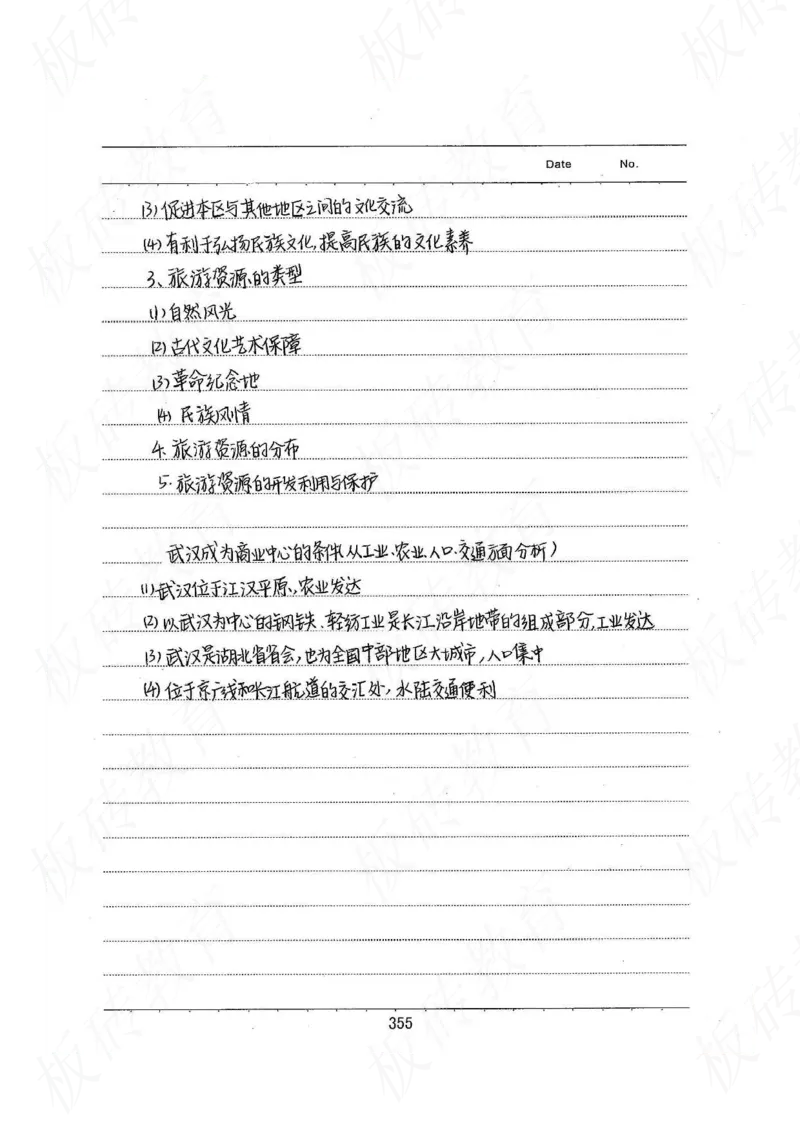 Date No.
(3)促进本区与其他地区之间的文化交流
(4)有利于弘扬民族文化,提高民族的文化素养
3、旅游资源的类型
(1)自然风光
(2)古代文化艺术保障
(3)革命纪念地
(4)民族风情
4.旅游资源的分布
5.旅游资源的开发利用与保护
武汉成为商业中心的条件(从工业、农业、人口、交通方面分析)
(1)武汉位于江汉平原,农业发达
(2)以武汉为中心的钢铁、轻纺工业是长江沿岸地带的组成部分,工业发达
(3)武汉是湖北省省会,也为全国中部地区大城市,人口集中
(4)位于京广线和长江航道的交汇处,水陆交通便利
355
板砖教育